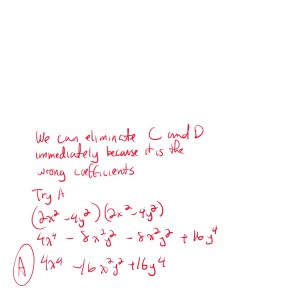 We can eliminate C and D
immediately because it is the
wrong coefficients
Try A
(2x² - 4y²) (2x² - 4y²)
4x⁴ - 8x²y² - 8x²y² + 16y⁴
A 4x⁴ - 16x²y² + 16y⁴